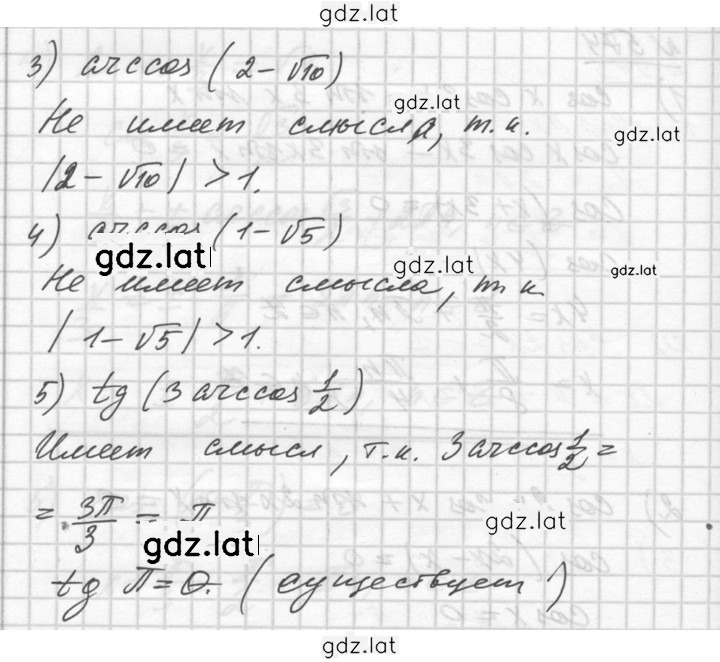 gdz.lat
3) arccos (2-√10)
gdz.lat
Не имеет смысла, т.к.
gdz.lat
|2-√10| > 1.
4) arccos (1-√5)
gdz.lat gdz.lat gdz.lat
Не имеет смысла, т.к
|1-√5| > 1.
5) tg (3 arccos 1/2)
Имеет смысл, т.к. 3 arccos 1/2 =
= 3π/3 = π
gdz.lat
gdz.lat
tg π = 0. (существует)
gdz.lat